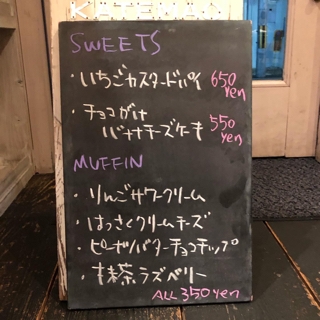 KATEMAN
SWEETS
・いちごカスタードパイ 650 yen
・チョコがけ
バナナチーズケーキ 550 yen
MUFFIN
・りんごサワークリーム
・はっさくクリームチーズ
・ピーナツバターチョコチップ
・抹茶ラズベリー
ALL 350 yen